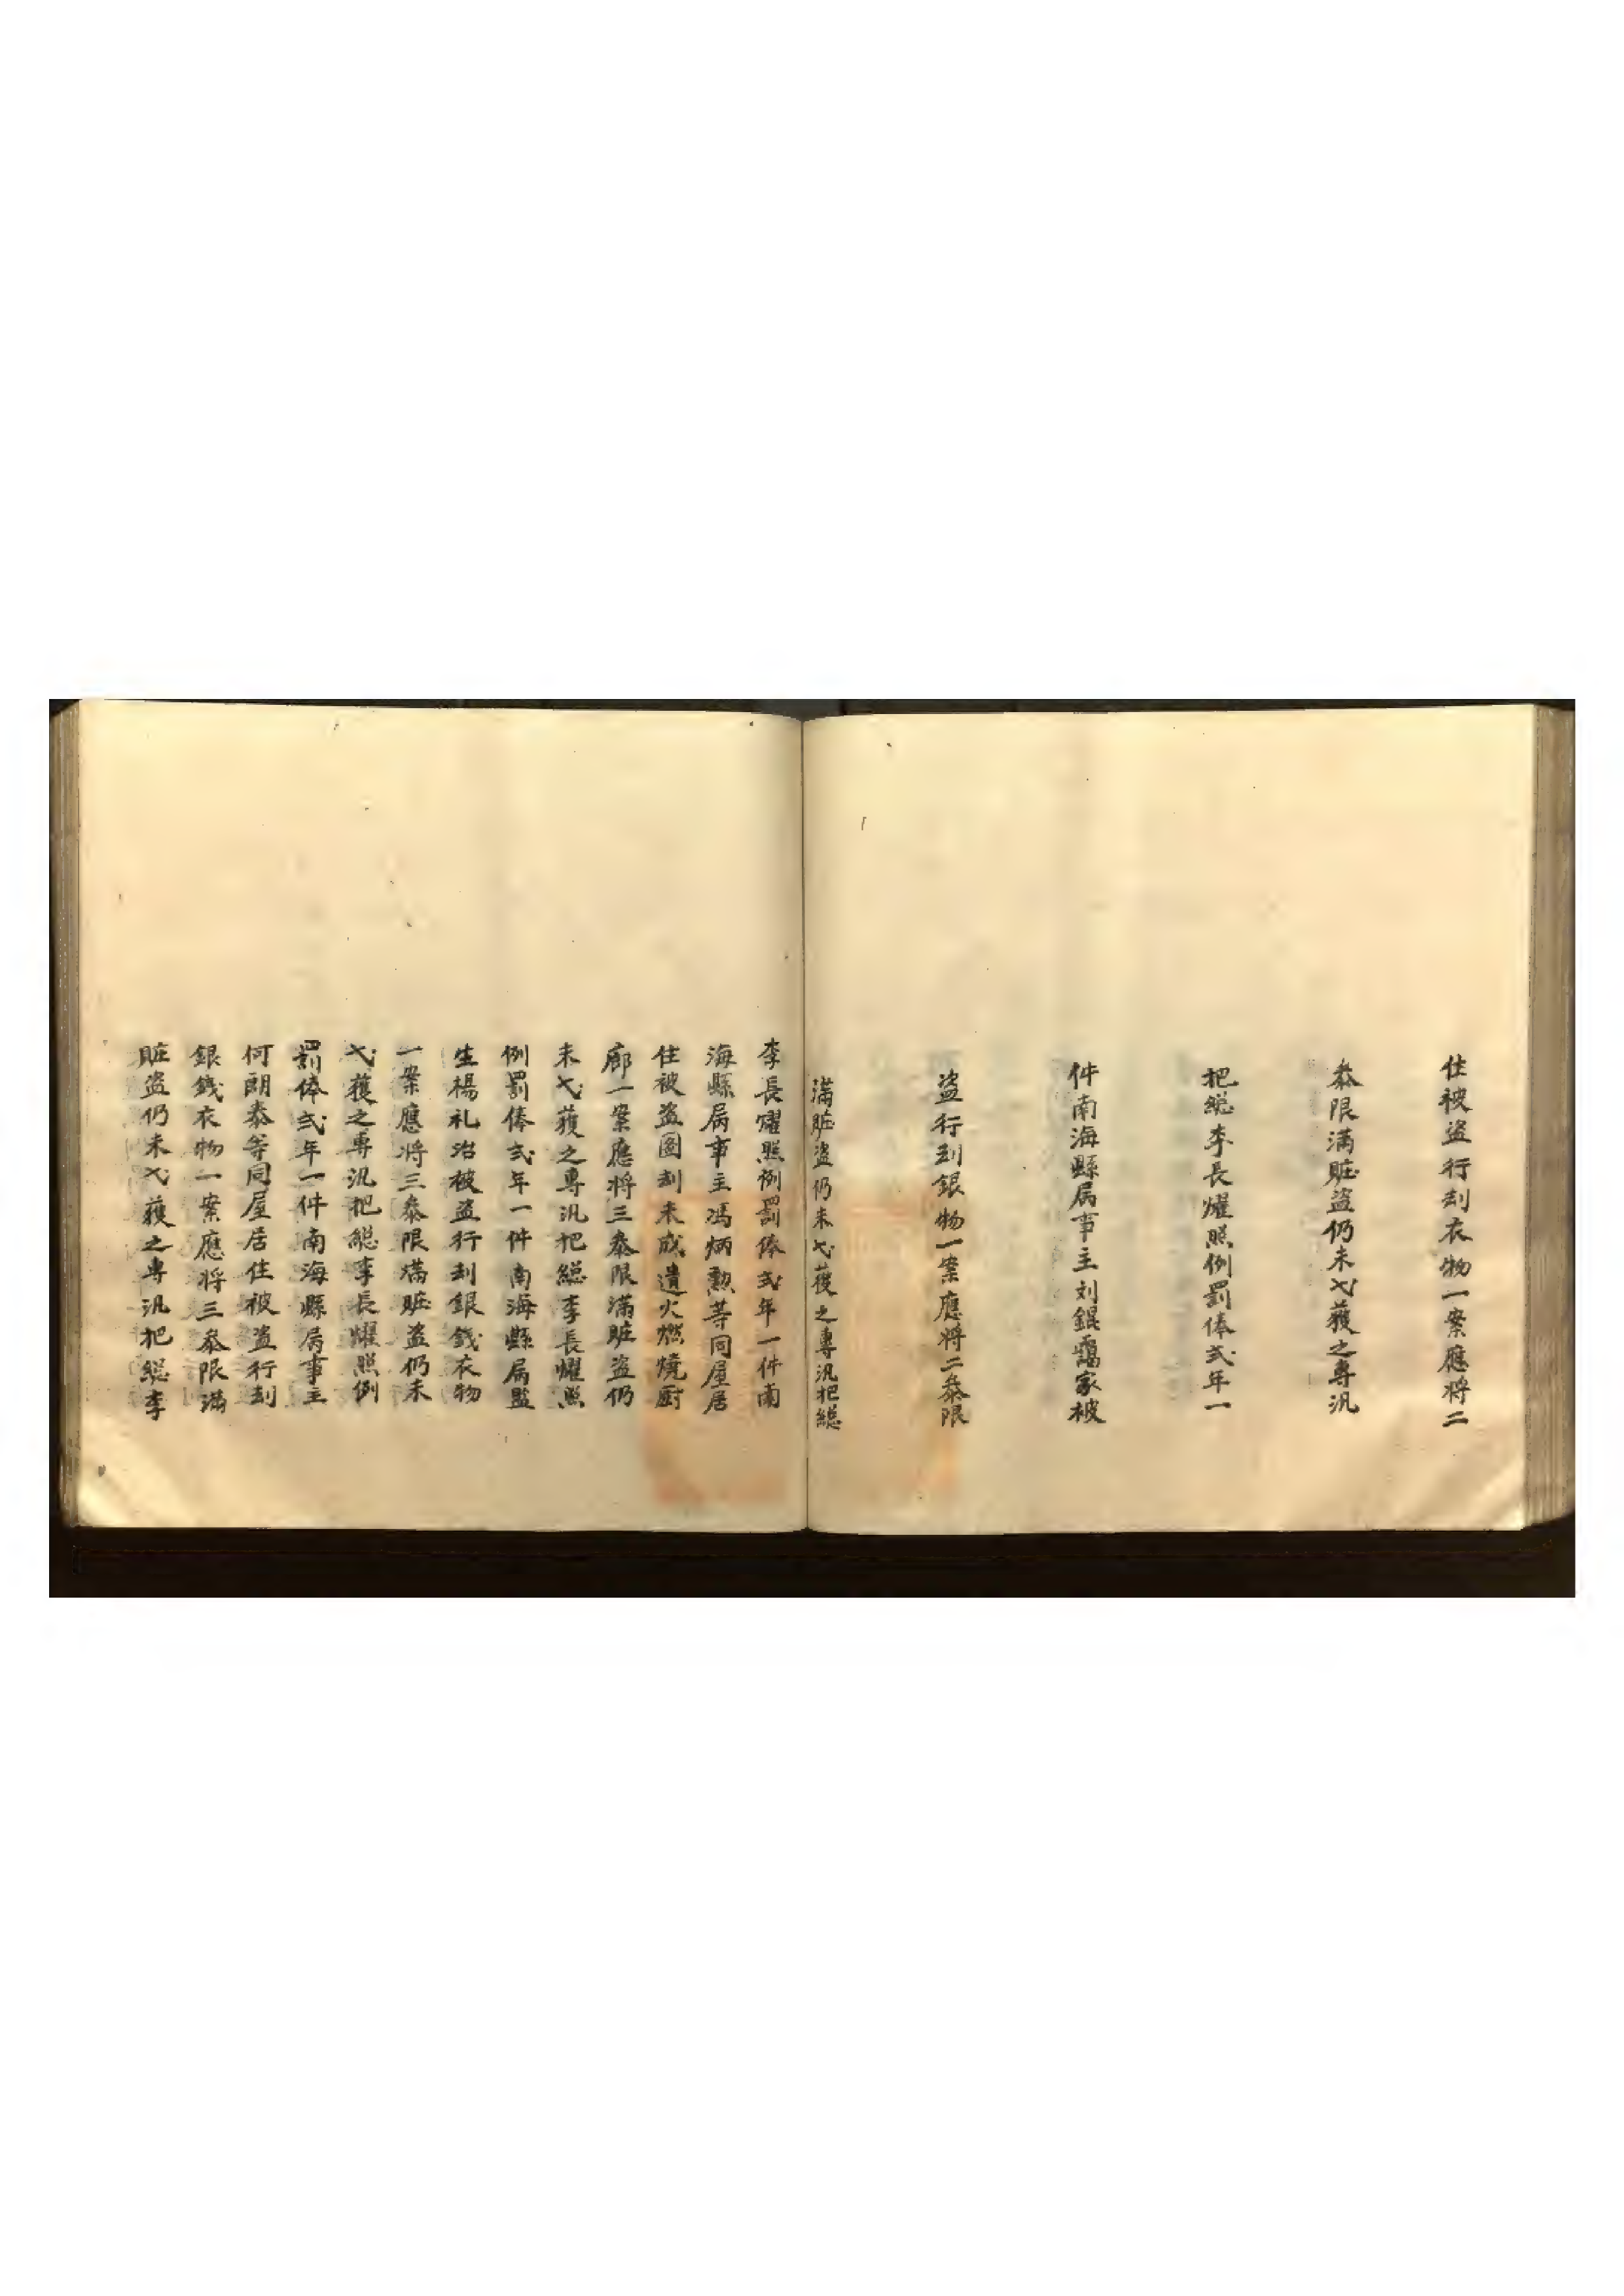 住被盜行刦衣物一案應將二
叅限滿賍盜仍未弋獲之專汛
把總李長燿照例罰俸弍年一
件南海縣屬事主刘錕靄家被
盜行刦銀物一案應將二叅限
滿賍盜仍未弋獲之專汛把總
李長燿照例罰俸弍年一件南
海縣屬事主馮炳勲等同屋居
住被盜圖刦未成遺火燃燒厨
廊一案應將三叅限滿賍盜仍
未弋獲之專汛把總李長燿照
例罰俸弍年一件南海縣屬監
生楊礼治被盜行刦銀錢衣物
一案應將三叅限滿賍盜仍未
弋獲之專汛把總李長燿照例
罰俸弍年一件南海縣屬事主
何朗泰等同屋居住被盜行刦
銀錢衣物一案應將三叅限滿
賍盜仍未弋獲之專汛把總李